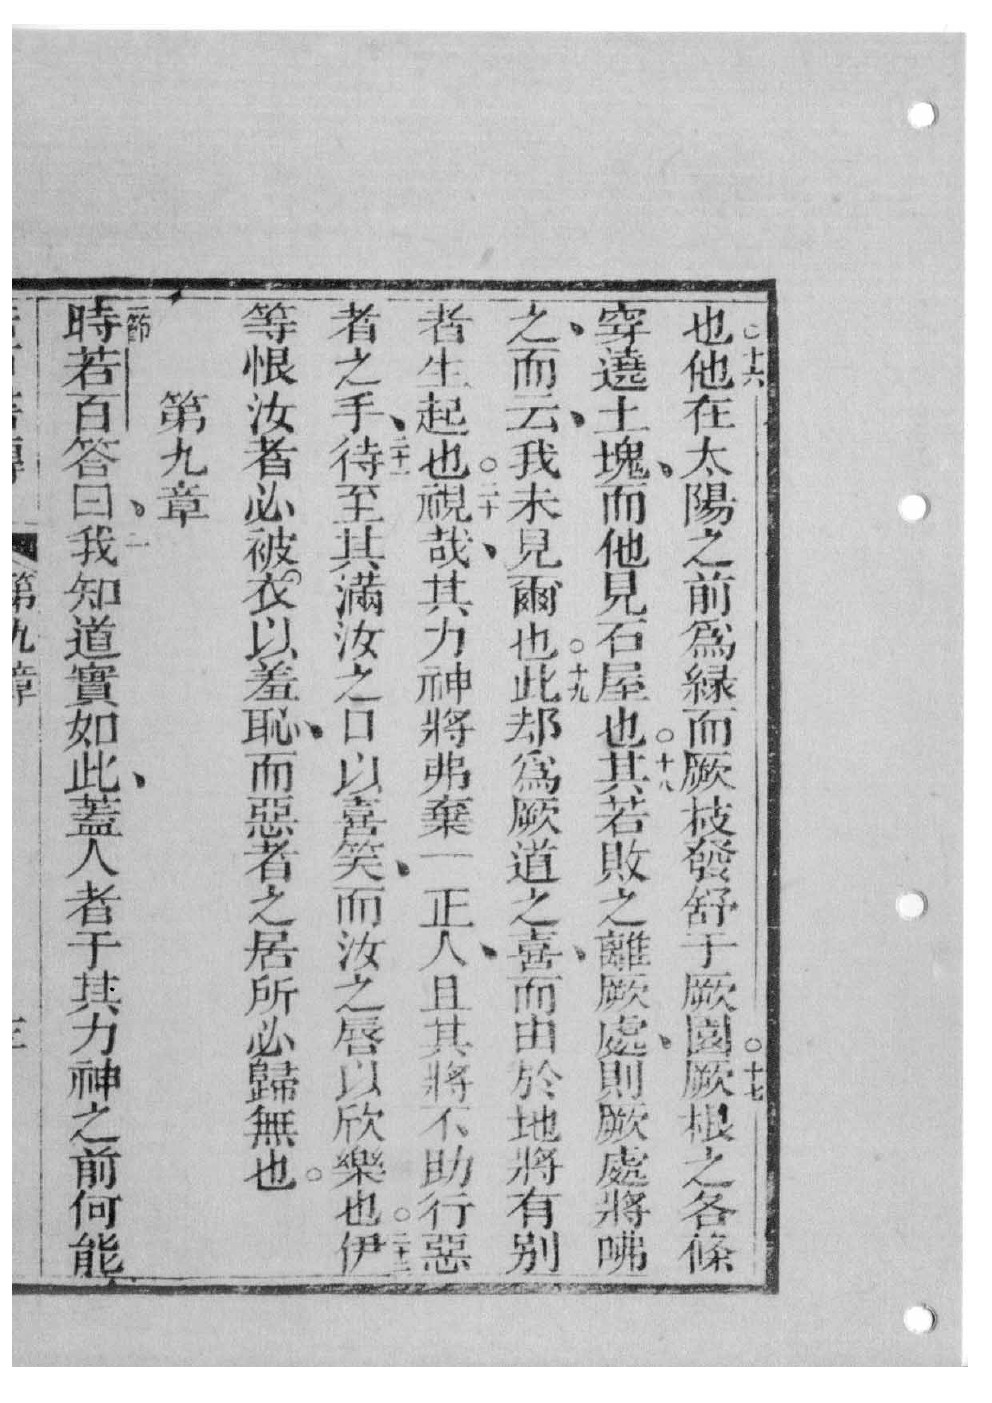 也○十六他在太陽之前爲緣而厥枝發舒于厥園○十七厥根之各條
穿遶土塊、而他見石屋也○十八其若敗之離厥處、則厥處將咈
之、而云、我未見爾也○十九此却爲厥道之喜、而由於地將有别
者生起也○二十視哉、其力神將弗棄一正人、且其將不助行惡
者之手、二十一待至其滿汝之口以喜笑、而汝之唇以欣樂也○二十二伊
等恨汝者必被衣以羞恥、而惡者之居所必歸無也○
第九章
一節時若百答曰、二我知道實如此、蓋人者于其力神之前何能
第九章